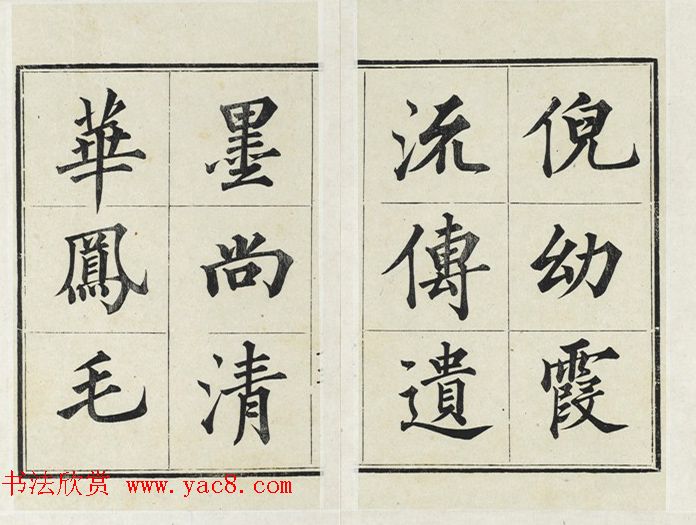 倪幼霞
流傳遺
墨尚清
華鳳毛
书法欣赏 www.yac8.com